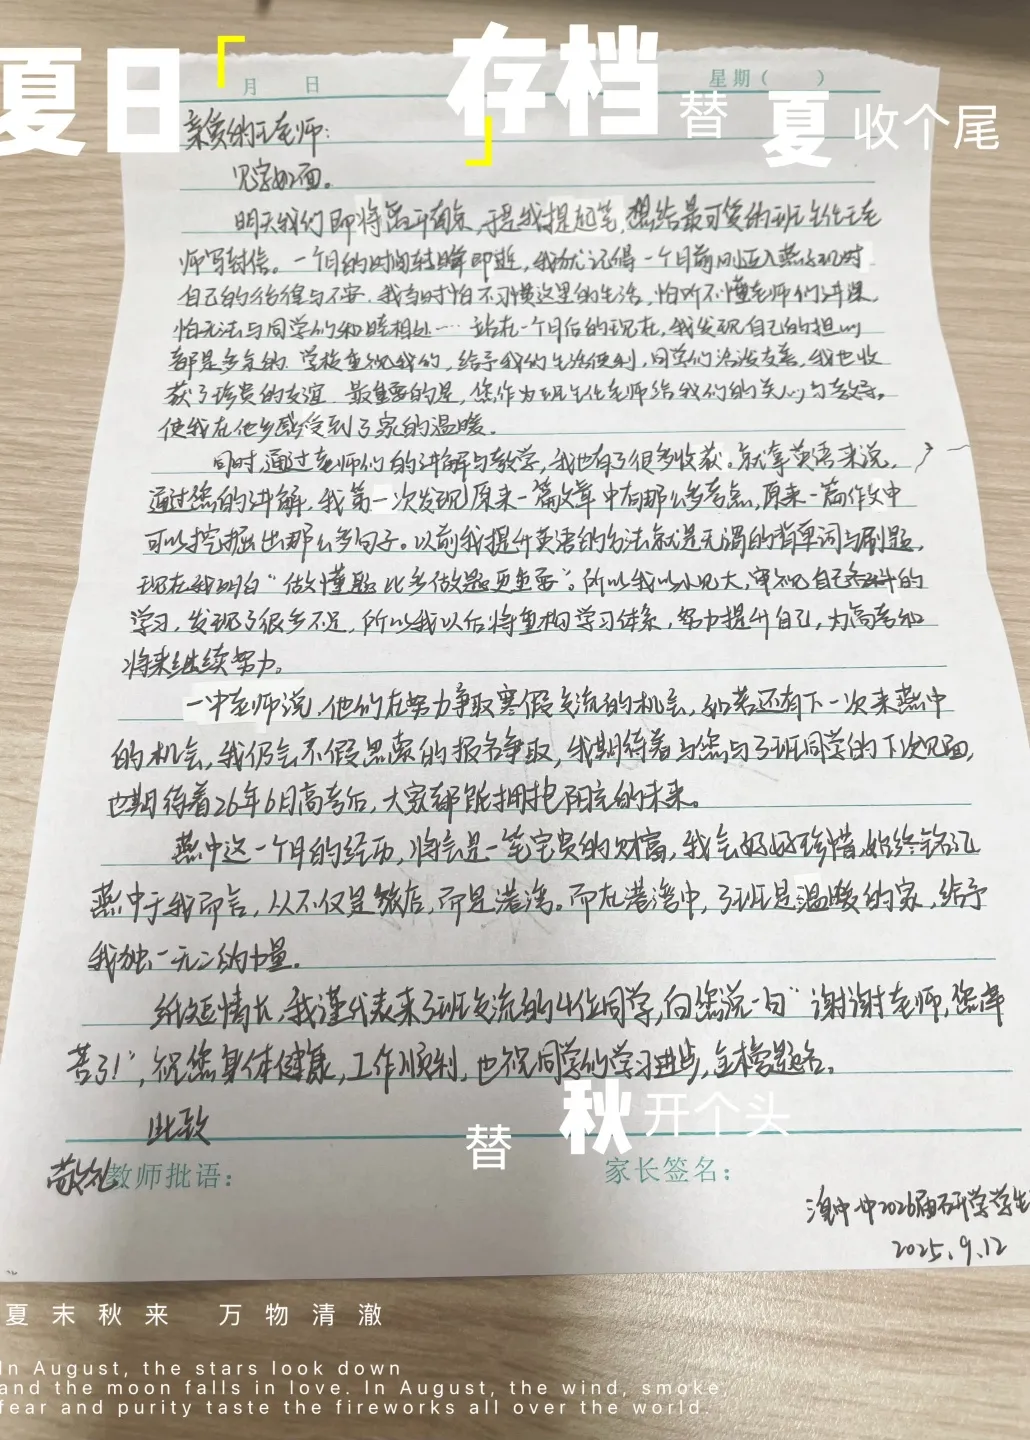 夏日「存档」
替 夏 收个尾
月 日 星期（ ）
亲爱的王老师：
见字如面。
明天我们即将离开南京，于是我提起笔，想给最可爱的班主任王老
师写封信。一个月的时间转瞬即逝，我犹记得一个月前刚迈入燕子矶时
自己的彷徨与不安，我当时怕不习惯这里的生活，怕听不懂老师们讲课，
怕无法与同学们和睦相处……站在一个月后的现在，我发现自己的担心
都是多余的。学校重视我们，给予我们生活便利，同学们活泼友善，我也收
获了珍贵的友谊，最重要的是，您作为班主任老师给我们的关心与教导，
使我在他乡感受到了家的温暖。
同时，通过老师们的讲解与教学，我也有了很多收获。就拿英语来说，
通过您的讲解，我第一次发现原来一篇文章中有那么多考点，原来一篇作文中
可以挖掘出那么多句子。以前我提升英语的方法就是无谓的背单词与刷题，
现在我明白“做懂题比多做题更重要”。所以我以小见大，审视自己各科的
学习，发现了很多不足，所以我以后将重构学习体系，努力提升自己，为高考和
将来继续努力。
一中老师说，他们在努力争取寒假交流的机会，如若还有下一次来燕中
的机会，我仍会不假思索的报名争取，我期待着与您与3班同学的下次见面，
也期待着26年6月高考后，大家都能拥抱阳光的未来。
燕中这一个月的经历，将会是一笔宝贵的财富，我会好好珍惜，始终铭记
燕中于我而言，从不仅是旅店，而是港湾。而在港湾中，3班是温暖的家，给予
我独一无二的力量。
纸短情长，我谨代表来3班交流的4位同学，向您说一句“谢谢老师，您辛
苦了！”，祝您身体健康，工作顺利，也祝同学们学习进步，金榜题名。
此致
敬礼
教师批语： 家长签名：
替 秋 开个头
湟中一中2026届研学学生
2025.9.12
夏末秋来 万物清澈
In August, the stars look down
and the moon falls in love. In August, the wind, smoke,
fear and purity taste the fireworks all over the world